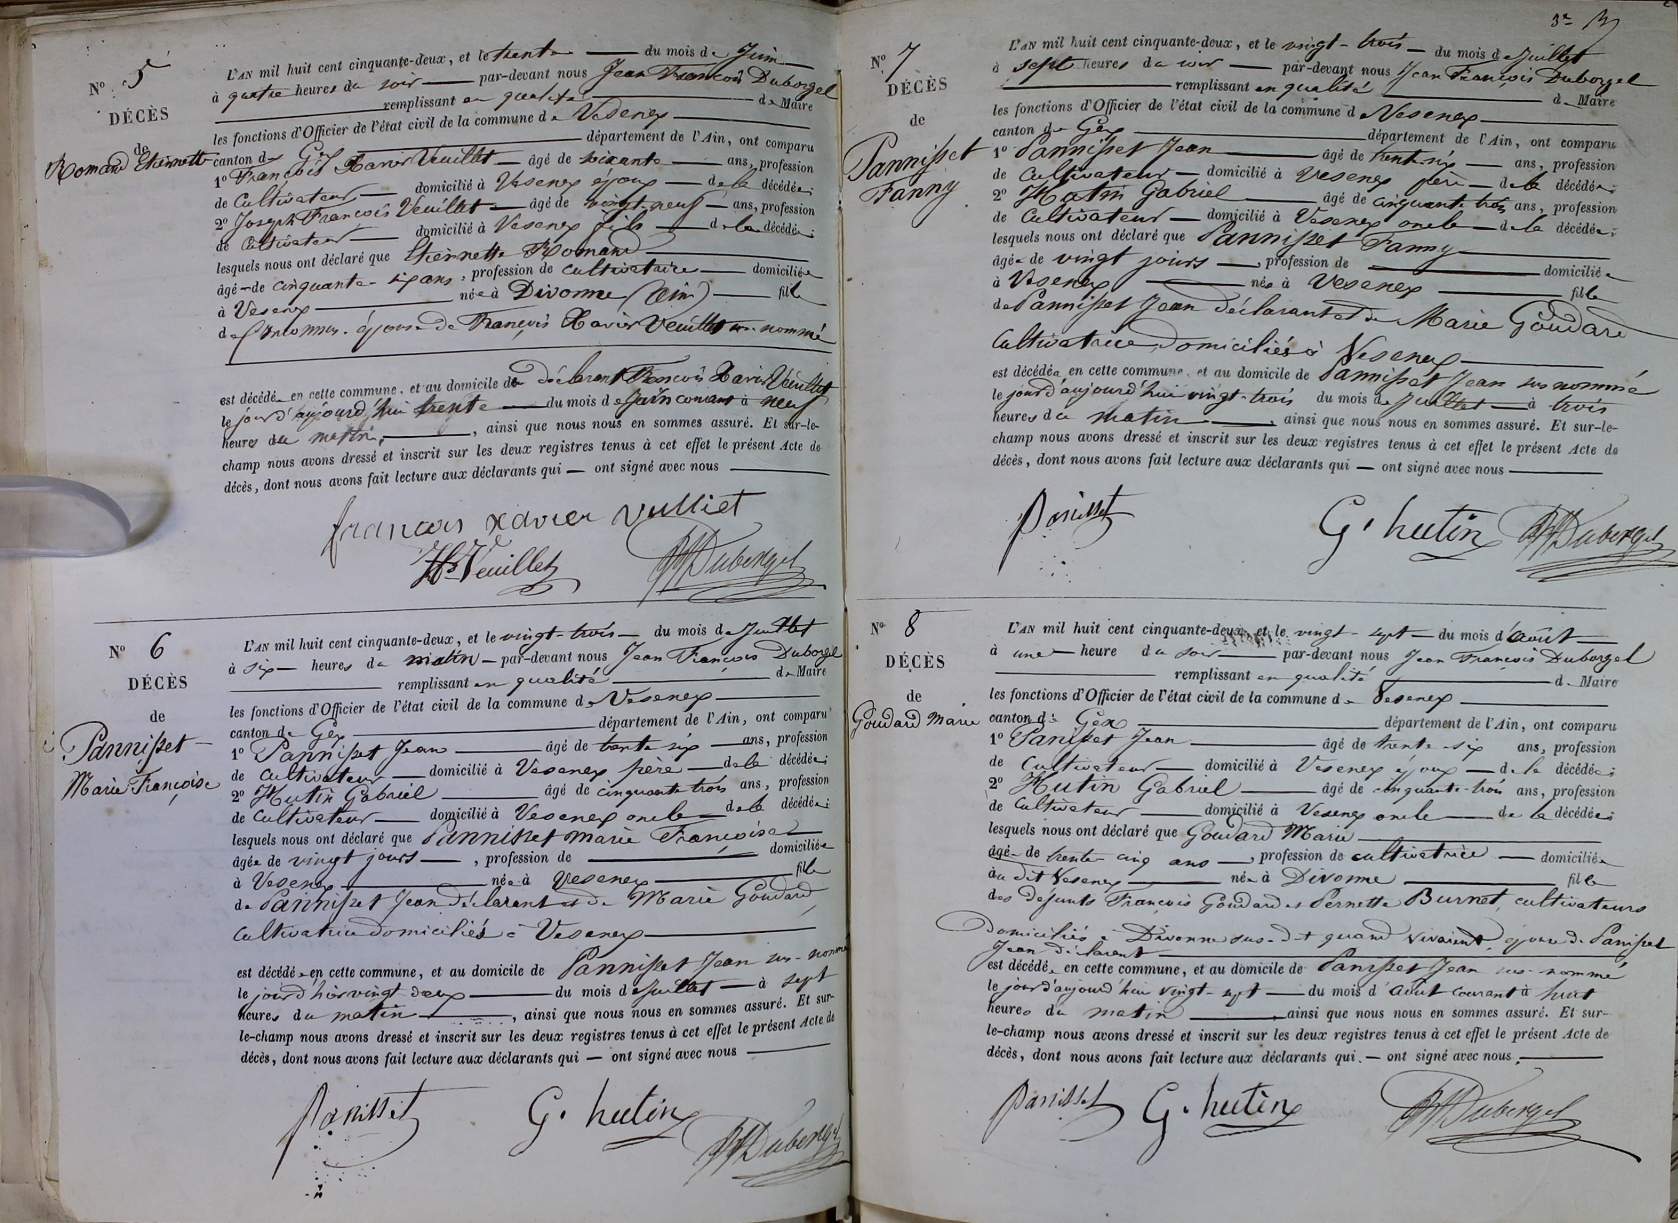 Nº 5
DÉCÈS
de
Romand Etiennette
L'AN mil huit cent cinquante-deux, et le trente du mois de Juin
à quatre heures du soir par-devant nous Jean François Duborgel
remplissant en qualité de Maire
les fonctions d'Officier de l'état civil de la commune de Vesenex
canton de Gex département de l'Ain, ont comparu
1º François Xavier Veuillet âgé de soixante ans, profession
de Cultivateur domicilié à Vesenex époux de la décédée;
2º Joseph François Veuillet âgé de vingt neuf ans, profession
de Cultivateur domicilié à Vesenex fils de la décédée;
lesquels nous ont déclaré que Etiennette Romand
âgée de cinquante-six ans, profession de cultivatrice domiciliée
à Vesenex née à Divonne (Ain) fille
de épouse de François Xavier Veuillet sus-nommé
est décédée en cette commune, et au domicile du déclarant François Xavier Veuillet
le jour d'aujourd'hui trente du mois de Juin courant à neuf
heures du matin, ainsi que nous nous en sommes assuré. Et sur-le-
champ nous avons dressé et inscrit sur les deux registres tenus à cet effet le présent Acte de
décès, dont nous avons fait lecture aux déclarants qui — ont signé avec nous
francois xavier vulliet
Veuillet
Duborgel
Nº 6
DÉCÈS
de
Pannisset
Marie Françoise
L'AN mil huit cent cinquante-deux, et le vingt-trois du mois de Juillet
à six heures du matin par-devant nous Jean François Duborgel
remplissant en qualité de Maire
les fonctions d'Officier de l'état civil de la commune de Vesenex
canton de Gex département de l'Ain, ont comparu
1º Pannisset Jean âgé de trente six ans, profession
de Cultivateur domicilié à Vesenex père de la décédée;
2º Hutin Gabriel âgé de cinquante trois ans, profession
de Cultivateur domicilié à Vesenex oncle de la décédée;
lesquels nous ont déclaré que Pannisset Marie Françoise
âgée de vingt jours, profession de domiciliée
à Vesenex née à Vesenex fille
de Pannisset Jean déclarant et de Marie Goudard
Cultivatrice domiciliés à Vesenex
est décédée en cette commune, et au domicile de Pannisset Jean sus-nommé
le jour d'hier vingt deux du mois de Juillet à sept
heures du matin, ainsi que nous nous en sommes assuré. Et sur-
le-champ nous avons dressé et inscrit sur les deux registres tenus à cet effet le présent Acte de
décès, dont nous avons fait lecture aux déclarants qui — ont signé avec nous
Panisset G. hutin
Duborgel
Nº 7
DÉCÈS
de
Pannisset
Fanny
L'AN mil huit cent cinquante-deux, et le vingt-trois du mois de Juillet
à sept heures du soir par-devant nous Jean François Duborgel
remplissant en qualité de Maire
les fonctions d'Officier de l'état civil de la commune de Vesenex
canton de Gex département de l'Ain, ont comparu
1º Pannisset Jean âgé de trente six ans, profession
de Cultivateur domicilié à Vesenex père de la décédée;
2º Hutin Gabriel âgé de cinquante trois ans, profession
de Cultivateur domicilié à Vesenex oncle de la décédée;
lesquels nous ont déclaré que Pannisset Fanny
âgée de vingt jours, profession de domiciliée
à Vesenex née à Vesenex fille
de Pannisset Jean déclarant et de Marie Goudard
Cultivatrice domiciliés à Vesenex
est décédée en cette commune, et au domicile de Pannisset Jean sus nommé
le jour d'aujourd'hui vingt-trois du mois de Juillet à trois
heures du matin, ainsi que nous nous en sommes assuré. Et sur-le-
champ nous avons dressé et inscrit sur les deux registres tenus à cet effet le présent Acte de
décès, dont nous avons fait lecture aux déclarants qui — ont signé avec nous
Panisset G. hutin Duborgel
Nº 8
DÉCÈS
de
Goudard Marie
L'AN mil huit cent cinquante-deux, et le vingt-sept du mois d'août
à une heure du soir par-devant nous Jean François Duborgel
remplissant en qualité de Maire
les fonctions d'Officier de l'état civil de la commune de Vesenex
canton de Gex département de l'Ain, ont comparu
1º Panisset Jean âgé de trente-six ans, profession
de Cultivateur domicilié à Vesenex époux de la décédée;
2º Hutin Gabriel âgé de cinquante-trois ans, profession
de Cultivateur domicilié à Vesenex oncle de la décédée;
lesquels nous ont déclaré que Goudard Marie
âgée de trente cinq ans, profession de cultivatrice domiciliée
au dit Vesenex née à Divonne fille
des defunts François Goudard et Pernette Burnet, cultivateurs
Domiciliés à Divonne sus-dit quand vivaient, épouse de Panisset
Jean déclarant
est décédée en cette commune, et au domicile de Panisset Jean sus-nommé
le jour d'aujourd'hui vingt-sept du mois d'août courant à huit
heures du matin, ainsi que nous nous en sommes assuré. Et sur-
le-champ nous avons dressé et inscrit sur les deux registres tenus à cet effet le présent Acte de
décès, dont nous avons fait lecture aux déclarants qui — ont signé avec nous.
Panisset G. hutin Duborgel